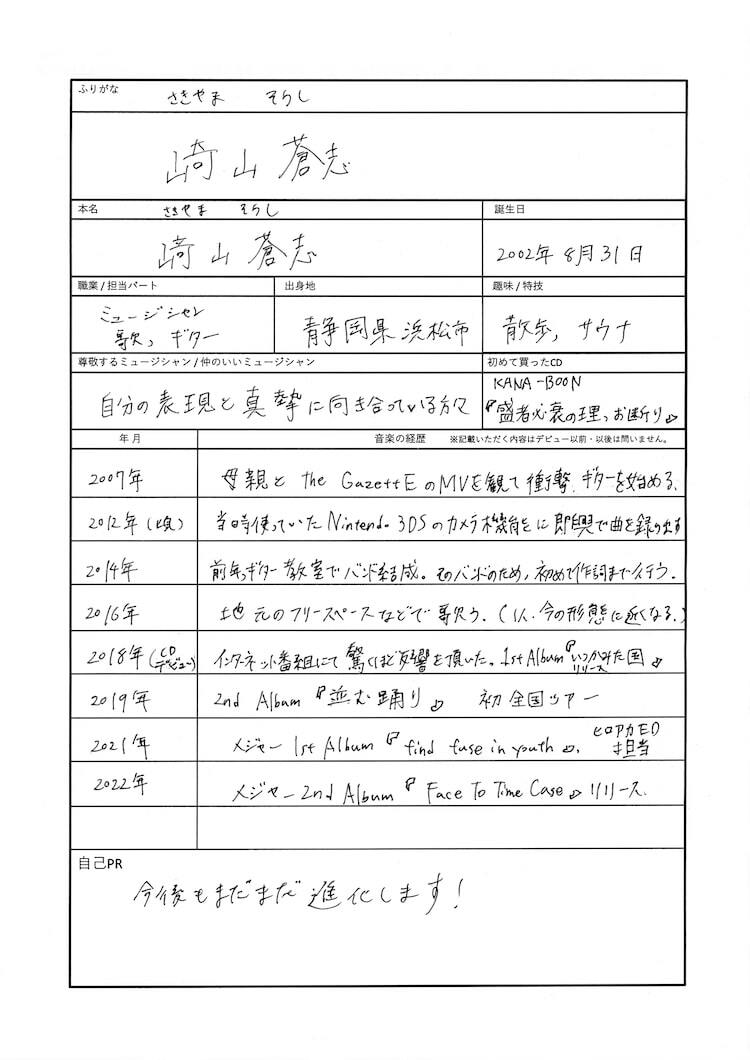 ふりがな さきやま そうし
崎山蒼志
本名 さきやま そうし 誕生日
崎山蒼志 2002年8月31日
職業 / 担当パート 出身地 趣味 / 特技
ミュージシャン
歌、ギター 静岡県浜松市 散歩,サウナ
尊敬するミュージシャン / 仲のいいミュージシャン 初めて買ったCD
自分の表現と真摯に向き合っている方々 KANA-BOON
『盛者必衰の理、お断り』
年月 音楽の経歴 ※記載いただく内容はデビュー以前・以後は問いません。
2007年 母親と the GazettEのMVを観て衝撃 ギターを始める.
2012年(頃) 当時使っていたNintendo 3DSのカメラ機能をに即興で曲を録り出す
2014年 前年、ギター教室でバンド結成。そのバンドのため,初めて作詞まで行う.
2016年 地元のフリースペースなどで歌う.(1人.今の形態に近くなる.)
2018年(CDデビュー) インターネット番組にて驚くほど反響を頂いた.1st Album『いつかみた国』リリース
2019年 2nd Album『並む踊り』 初全国ツアー
2021年 メジャー 1st Album『find fuse in youth』, ヒロアカED担当
2022年 メジャー2nd Album『Face To Time Case』リリース.
自己PR
今後もまだまだ進化します!